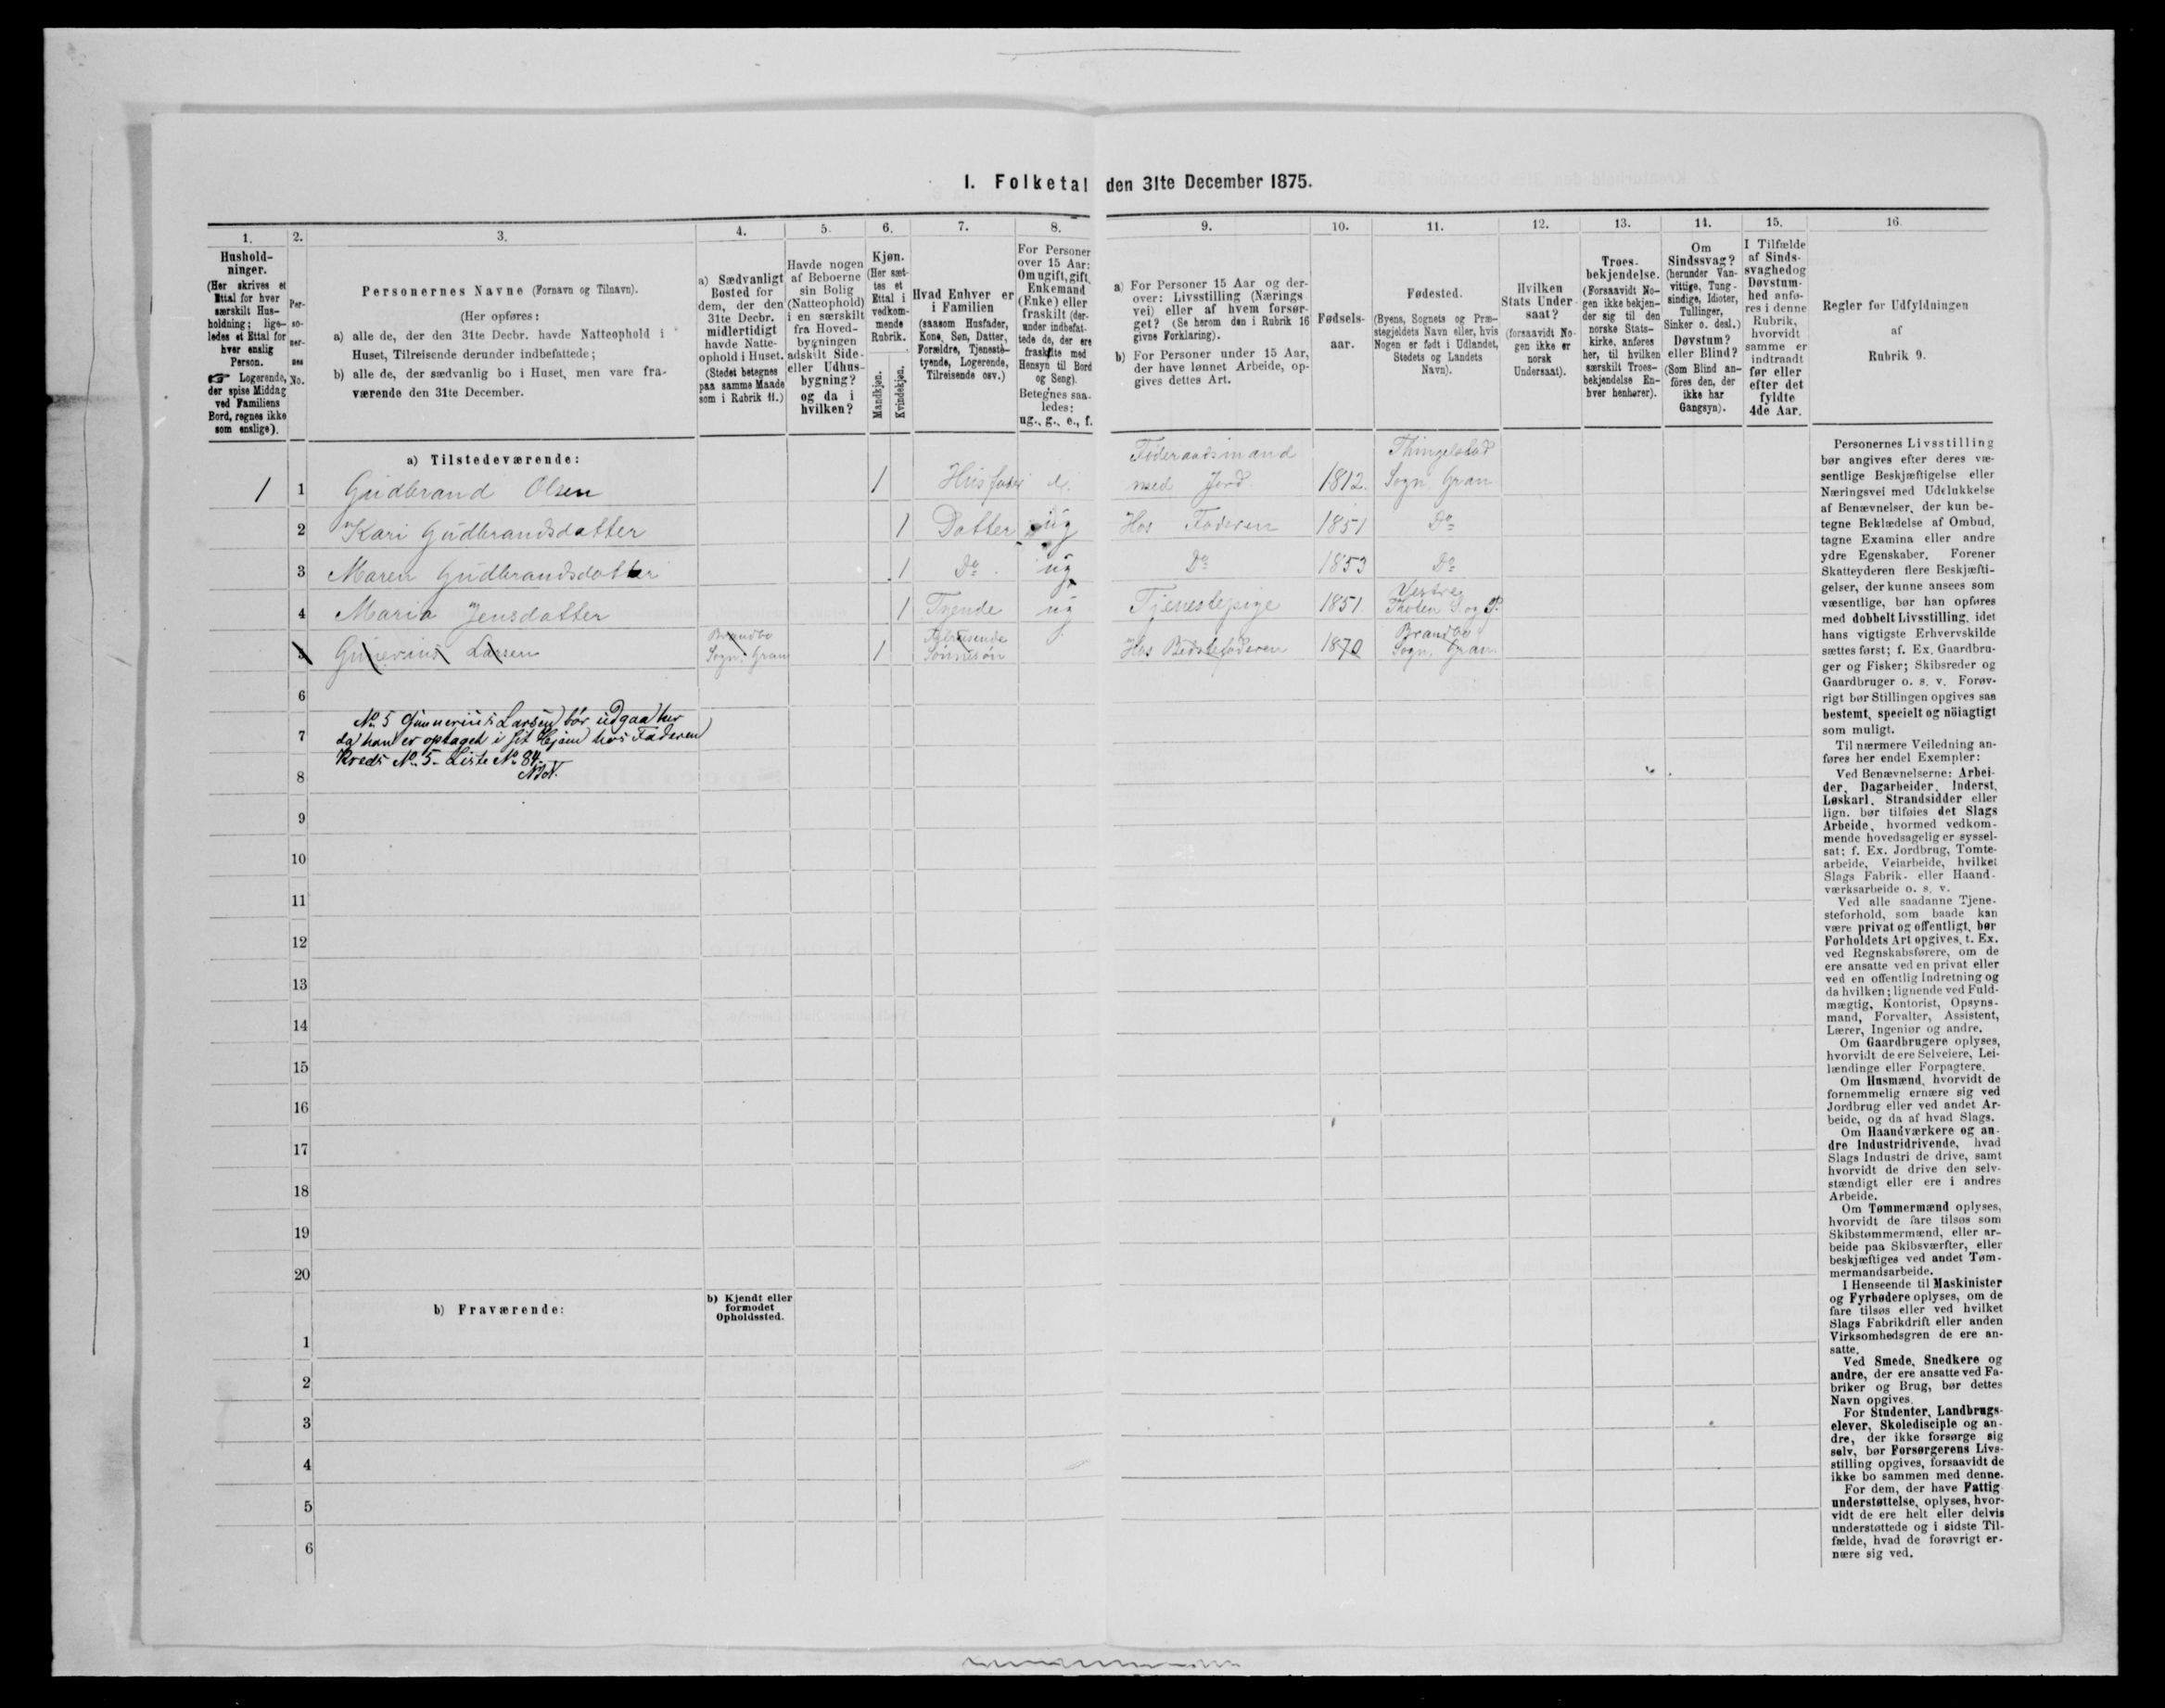 I. Folketal den 31te December 1875.
1.
Hushold-
ninger.
(Her skrives et
Ettal for hver
særskilt Hus-
holdning; lige-
ledes et Ettal for
hver enslig
Person.
☞ Logerende,
der spise Middag
ved Familiens
Bord, regnes ikke
som enslige).
2.
Per-
so-
ner-
nes
No.
3.
Personernes Navne (Fornavn og Tilnavn).
(Her opføres:
a) alle de, der den 31te Decbr. havde Natteophold i
Huset, Tilreisende derunder indbefattede;
b) alle de, der sædvanlig bo i Huset, men vare fra-
værende den 31te December.
4.
a) Sædvanligt
Bosted for
dem, der den
31te Decbr.
midlertidigt
havde Natte-
ophold i Huset.
(Stedet betegnes
paa samme Maade
som i Rubrik 11.)
5.
Havde nogen
af Beboerne
sin Bolig
(Natteophold)
i en særskilt
fra Hoved-
bygningen
adskilt Side-
eller Udhus-
bygning?
og da i
hvilken?
6.
Kjøn.
(Her sæt-
tes et
Ettal i
vedkom-
mende
Rubrik.
Mandkjøn.
Kvindekjøn.
7.
Hvad Enhver er
i Familien
(saasom Husfader,
Kone, Søn, Datter,
Forældre, Tjeneste-
tyende, Logerende,
Tilreisende osv.)
8.
For Personer
over 15 Aar:
Om ugift, gift,
Enkemand
(Enke) eller
fraskilt (der-
under indbefat-
tede de, der ere
fraskilte med
Hensyn til Bord
og Seng).
Betegnes saa-
ledes:
ug., g., e., f.
9.
a) For Personer 15 Aar og der-
over: Livsstilling (Nærings
vei) eller af hvem forsør-
get? (Se herom den i Rubrik 16
givne Forklaring).
b) For Personer under 15 Aar,
der have lønnet Arbeide, op-
gives dettes Art.
10.
Fødsels-
aar.
11.
Fødested.
(Byens, Sognets og Præ-
stegjeldets Navn eller, hvis
Nogen er født i Udlandet,
Stedets og Landets
Navn).
12.
Hvilken
Stats Under-
saat?
(forsaavidt No-
gen ikke er
norsk
Undersaat).
13.
Troes-
bekjendelse.
(Forsaavidt No-
gen ikke bekjen-
der sig til den
norske Stats-
kirke, anføres
her, til hvilken
særskilt Troes-
bekjendelse En-
hver henhører).
14.
Om
Sindssvag?
(herunder Van-
vittige, Tung-
sindige, Idioter,
Tullinger,
Sinker o. desl.)
Døvstum?
eller Blind?
(Som Blind an-
føres den, der
ikke har
Gangsyn).
15.
I Tilfælde
af Sinds-
svaghed og
Døvstum-
hed anfø-
res i denne
Rubrik,
hvorvidt
samme er
indtraadt
før eller
efter det
fyldte
4de Aar.
16.
Regler for Udfyldningen
af
Rubrik 9.
a) Tilstedeværende:
1 1 Gudbrand Olsen 1 Husfader e. Føderaadsmand med Jord. 1812. Thingelstad Sogn. Gran
2 Kari Gudbrandsdatter 1 Datter ug Hos Faderen 1851 Do
3 Maren Gudbrandsdatter 1 Do. ug Do 1853 Do
4 Maria Jensdatter 1 Tyende ug Tjenestepige 1851. Vestre Thoten S. og P.
5 Gunerius Larsen Brandbo Sogn. Gran 1 Tilreisende Sønnesøn Hos Bedstefaderen 1870 Brandbo Sogn. Gran
6
No. 5 Gunnerius Larsen bør udgaa her
7 da han er optaget i sit Hjem hos Faderen
Kreds No. 5 - Liste No. 84.
8
9
10
11
12
13
14
15
16
17
18
19
20
b) Fraværende:
b) Kjendt eller
formodet
Opholdssted.
1
2
3
4
5
6
Personernes Livsstilling
bør angives efter deres væ-
sentlige Beskjæftigelse eller
Næringsvei med Udelukkelse
af Benævnelser, der kun be-
tegne Beklædelse af Ombud,
tagne Examina eller andre
ydre Egenskaber. Forener
Skatteyderen flere Beskjæfti-
gelser, der kunne ansees som
væsentlige, bør han opføres
med dobbelt Livsstilling, idet
hans vigtigste Erhvervskilde
sættes først; f. Ex. Gaardbru-
ger og Fisker; Skibsreder og
Gaardbruger o. s. v. Forøv-
rigt bør Stillingen opgives saa
bestemt, specielt og nöiagtigt
som muligt.
Til nærmere Veiledning an-
føres her endel Exempler:
Ved Benævnelserne: Arbei-
der, Dagarbeider, Inderst,
Løskarl, Strandsidder eller
lign. bør tilføies det Slags
Arbeide, hvormed vedkom-
mende hovedsagelig er syssel-
sat; f. Ex. Jordbrug, Tomte-
arbeide, Veiarbeide, hvilket
Slags Fabrik- eller Haand-
værksarbeide o. s. v.
Ved alle saadanne Tjene-
steforhold, som baade kan
være privat og offentligt, bør
Forholdets Art opgives, t. Ex.
ved Regnskabsførere, om de
ere ansatte ved en privat eller
ved en offentlig Indretning og
da hvilken; lignende ved Fuld-
mægtig, Kontorist, Opsyns-
mand, Forvalter, Assistent,
Lærer, Ingeniør og andre.
Om Gaardbrugere oplyses,
hvorvidt de ere Selveiere, Lei-
lændinge eller Forpagtere.
Om Husmænd, hvorvidt de
fornemmelig ernære sig ved
Jordbrug eller ved andet Ar-
beide, og da af hvad Slags.
Om Haandværkere og an-
dre Industridrivende, hvad
Slags Industri de drive, samt
hvorvidt de drive den selv-
stændigt eller ere i andres
Arbeide.
Om Tømmermænd oplyses,
hvorvidt de fare tilsøs som
Skibstømmermænd, eller ar-
beide paa Skibsværfter, eller
beskjæftiges ved andet Tøm-
mermandsarbeide.
I Henseende til Maskinister
og Fyrbødere oplyses, om de
fare tilsøs eller ved hvilket
Slags Fabrikdrift eller anden
Virksomhedsgren de ere an-
satte.
Ved Smede, Snedkere og
andre, der ere ansatte ved Fa-
briker og Brug, bør dettes
Navn opgives.
For Studenter, Landbrugs-
elever, Skoledisciple og an-
dre, der ikke forsørge sig
selv, bør Forsørgerens Livs-
stilling opgives, forsaavidt de
ikke bo sammen med denne.
For dem, der have Fattig-
understøttelse, oplyses, hvor-
vidt de ere helt eller delvis
understøttede og i sidste Til-
fælde, hvad de forøvrigt er-
nære sig ved.